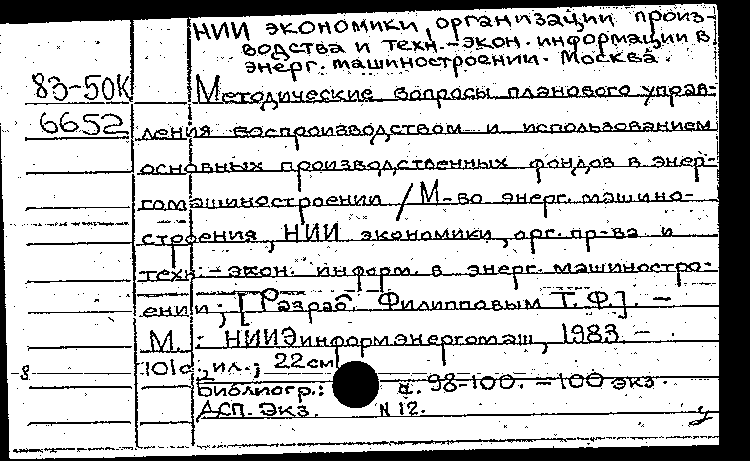 НИИ экономики, организации произ-
водства и техн.-экон. информации в
энерг. машиностроении. Москва.
83-50К Методические вопросы планового управ-
6652 ления воспроизводством и использованием
основных производственных фондов в энер-
гомашиностроении / М-во энерг. машино-
строения, НИИ экономики, орг. пр-ва и
техн.-экон. информ. в энерг. машиностро-
ении; [Разраб. Филипповым Т.Ф.]. —
М.: НИИЭинформэнергомаш, 1983. —
101 с., ил.; 22 см
Библиогр.: с. 98-100. — 100 экз.
АСП. Экз. N 12.